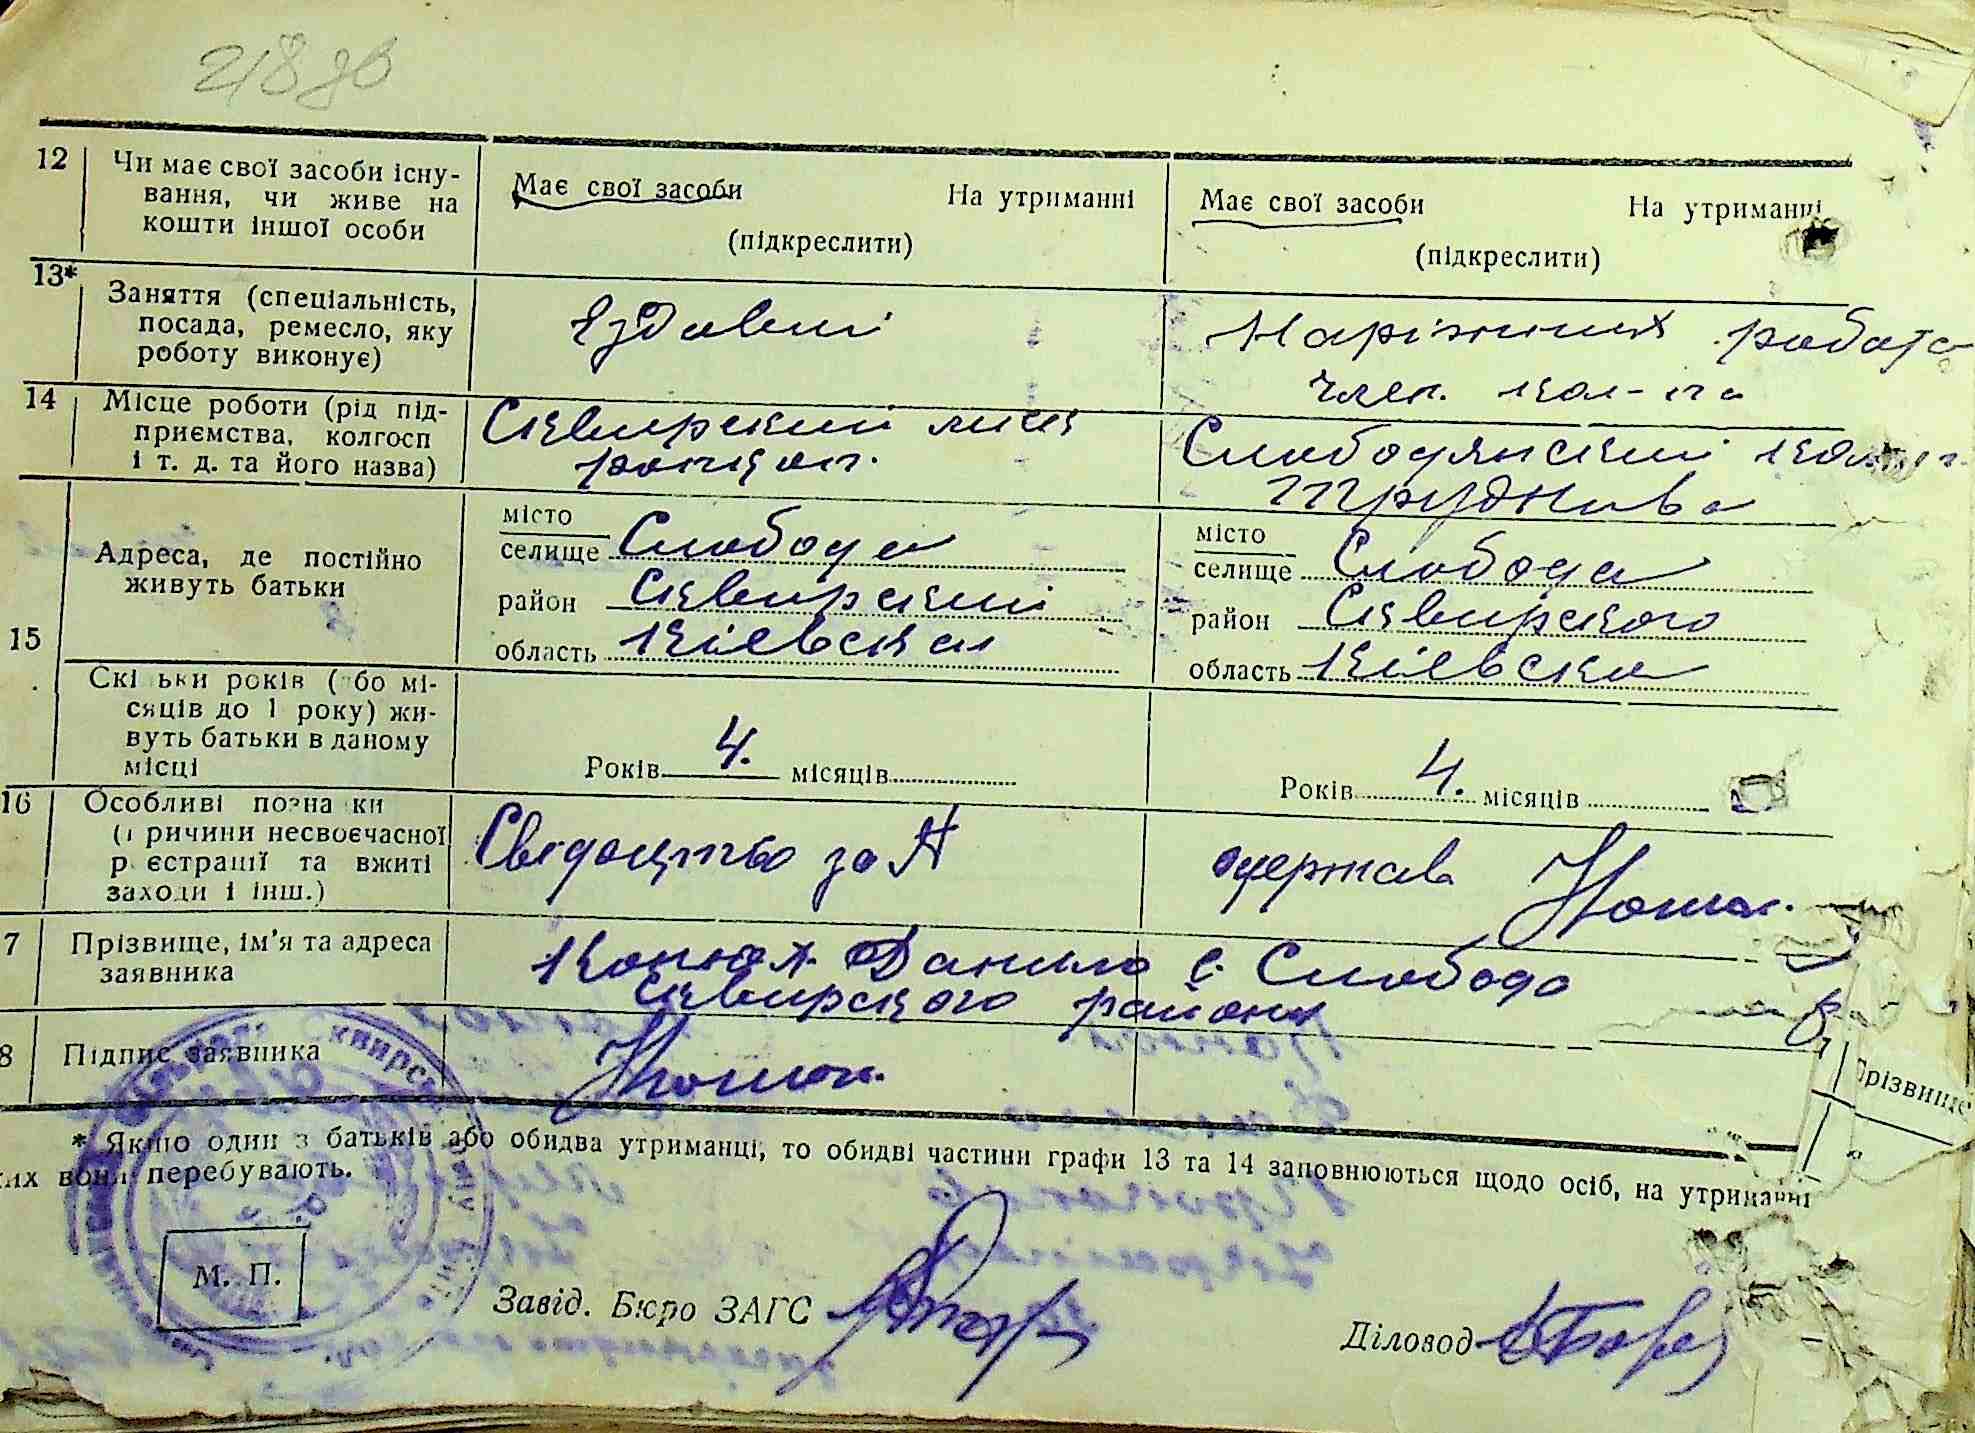 218 зв
12 Чи має свої засоби існу-
вання, чи живе на
кошти іншої особи
Має свої засоби На утриманні
(підкреслити)
Має свої засоби На утриманні
(підкреслити)
13* Заняття (спеціальність,
посада, ремесло, яку
роботу виконує)
Єздовий
робота
член. кол-па
14 Місце роботи (рід під-
приємства, колгосп
і т. д. та його назва)
Сквирский
Слободянский
15 Адреса, де постійно
живуть батьки
місто
селище Слобода
район Сквирский
область Київская
місто
селище Слобода
район Сквирского
область Київска
Скі ьки років ( бо мі-
сяців до 1 року) жи-
вуть батьки в даному
місці
Років 4. місяців
Років 4. місяців
16 Особливі позна ки
( ричини несвоєчасної
р єстрації та вжиті
заходи і інш.)
Свідоцтво за №
одержав
7 Прізвище, ім'я та адреса
заявника
Данило с. Слобода
Сквирского района
8 Підпис заявника
* Якщо один з батьків або обидва утриманці, то обидві частини графи 13 та 14 заповнюються щодо осіб, на утриманні
ких вони перебувають.
Прізвище
М. П.
Завід. Бюро ЗАГС
Діловод